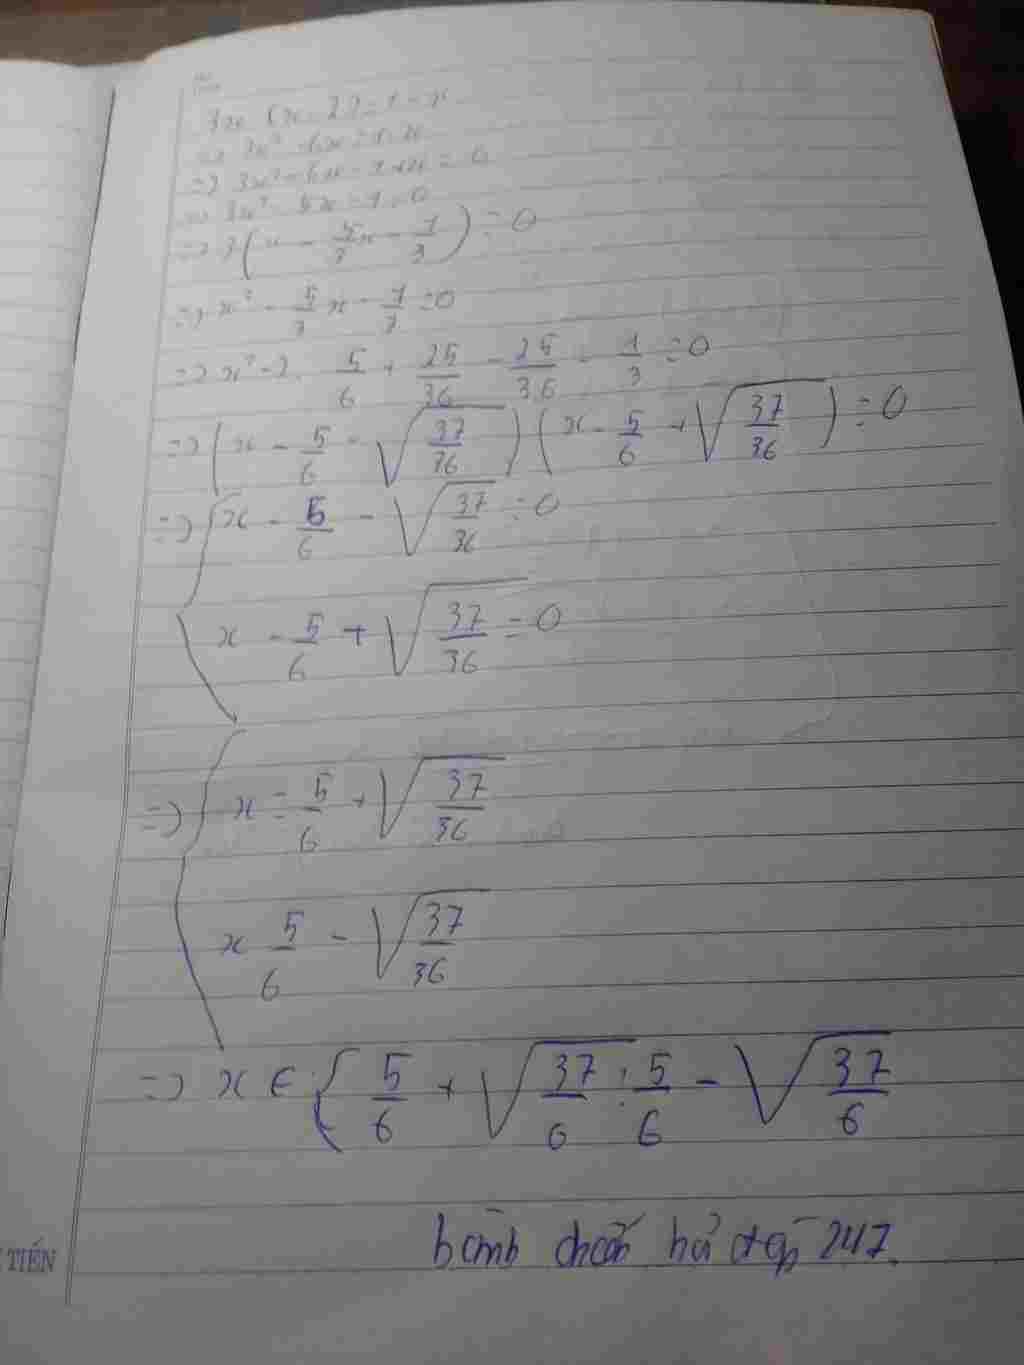 3x (x - 2) = 1 - x
=> 3x² - 6x = 1 - x
=> 3x² - 6x - 1 + x = 0
=> 3x² - 5x - 1 = 0
=> 3(x - 5/3 x - 1/3) = 0
=> x² - 5/3 x - 1/3 = 0
=> x² - 2. 5/6 + 25/36 - 25/36 - 1/3 = 0
=> (x - 5/6 - √37/36) (x - 5/6 + √37/36) = 0
=> { x - 5/6 - √37/36 = 0
x - 5/6 + √37/36 = 0
=> { x = 5/6 + √37/36
x 5/6 - √37/36
=> x ∈ { 5/6 + √37/6 ; 5/6 - √37/6
247.
TIẾN